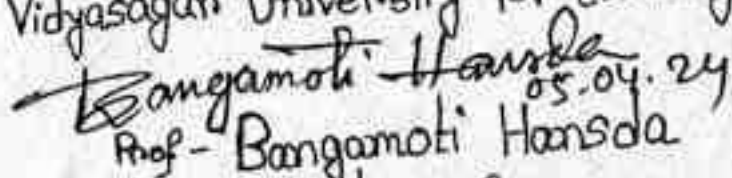 Vidyasagar University
Bangamoti Hansda
05.04.24
Prof - Bangamoti Hansda